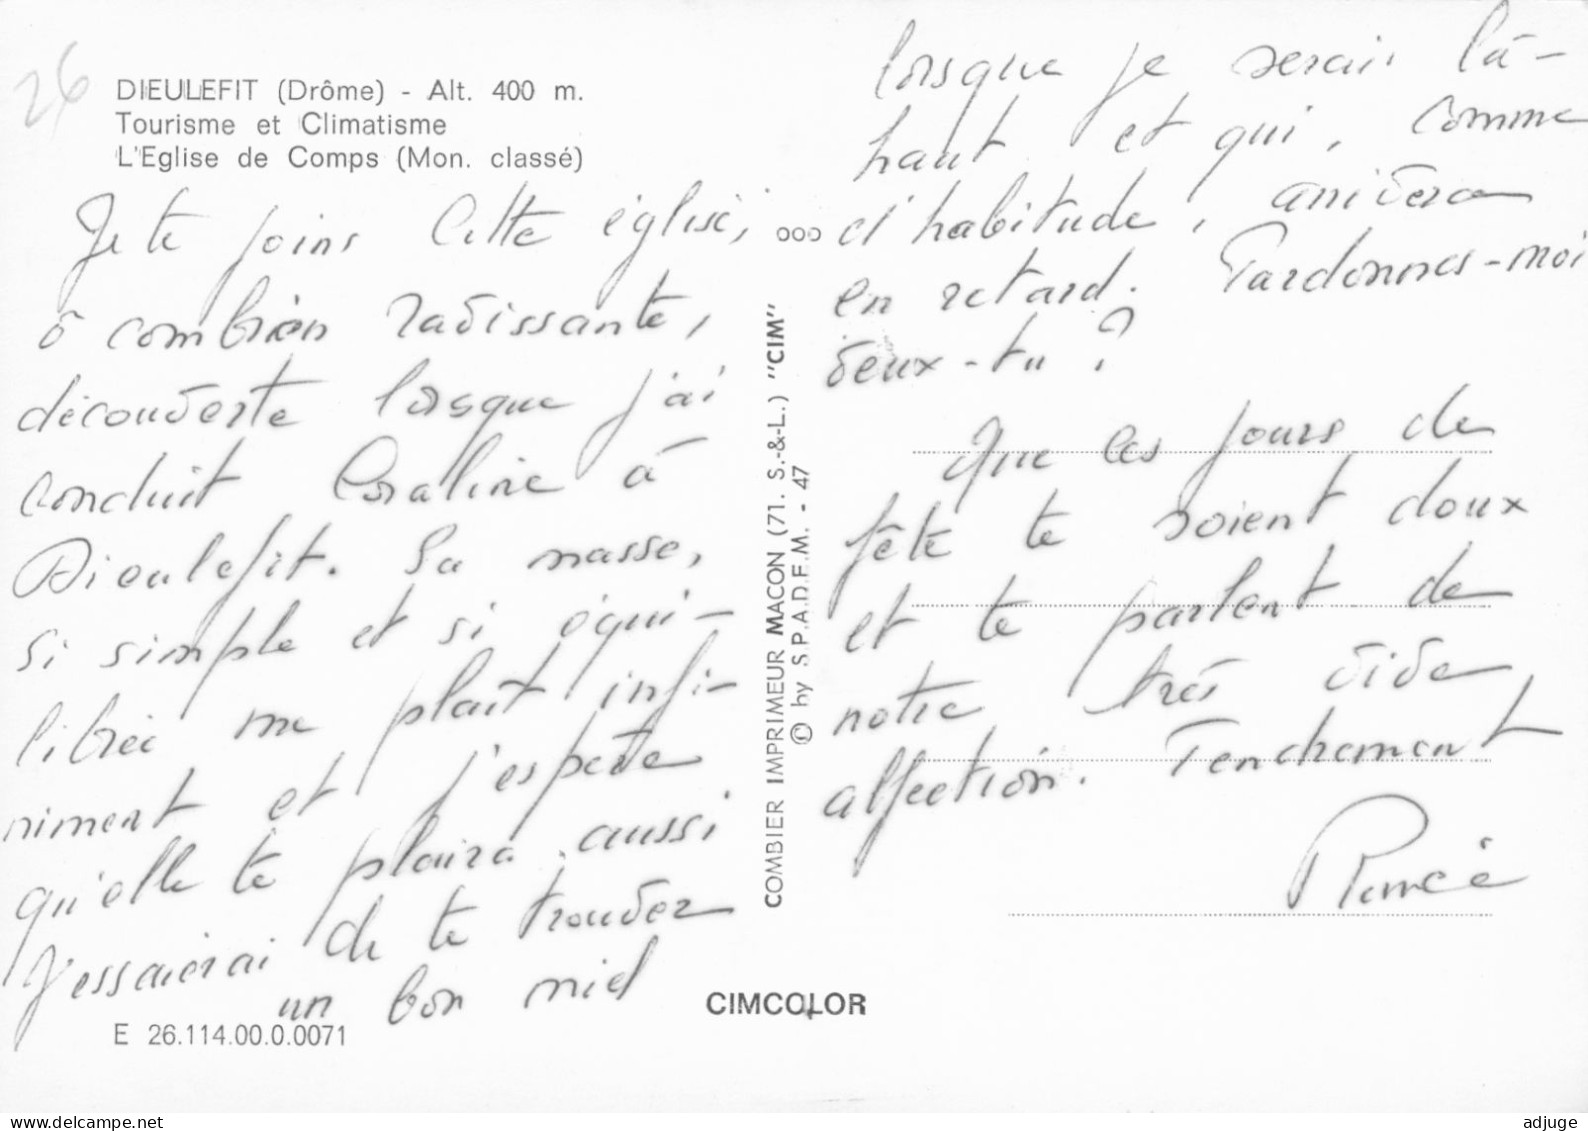 26
DIEULEFIT (Drôme) - Alt. 400 m.
Tourisme et Climatisme
L'Eglise de Comps (Mon. classé)
Je te joins cette église,
ô combien ravissante,
découverte lorsque j'ai
conduit Coraline à
Dieulefit. Sa masse,
si simple et si équi-
librée me plaît infi-
niment et j'espère
qu'elle te plaira aussi
J'essaierai de te trouver
un bon miel
E 26.114.00.0.0071
COMBIER IMPRIMEUR MACON (71. S.-&-L.) "CIM"
© by S.P.A.D.E.M. - 47
CIMCOLOR
lorsque je serai là-
haut et qui, comme
d'habitude, arrivera
en retard. Pardonnes-moi
veux-tu ?
Que les jours de
fête te soient doux
et te parlent de
notre très vive
affection. Tendrement
delcampe.net
adjuge